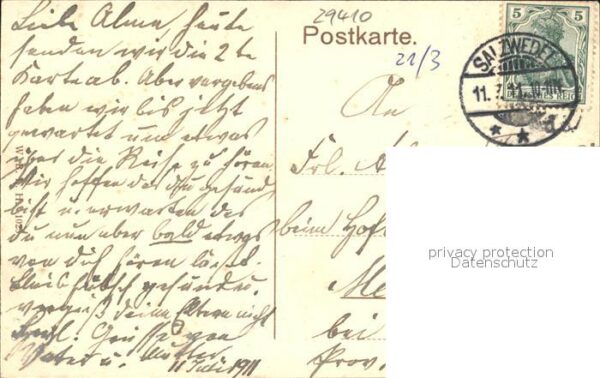 29410
Postkarte.
21/3
5 5
SALZWEDEL
11. 7. 11.
DEUTSCHES REICH
Liebe Alma heute
senden wir die 2te
Karte ab. Aber vergebens
haben wir bis jetzt
gewartet um etwas
über die Reise zu hören
Wir hoffen das du gesund
bist u. erwarten das
du nun aber bald etwas
von dich hören läßt.
Bleib hübsch gesund u.
vergiß deine Eltern nicht
Herzl. Grüsse von
Vater u. Mutter
11 Juli 1911
An
Frl. A
beim Hof
Me
bei
Prov.
privacy protection
Datenschutz